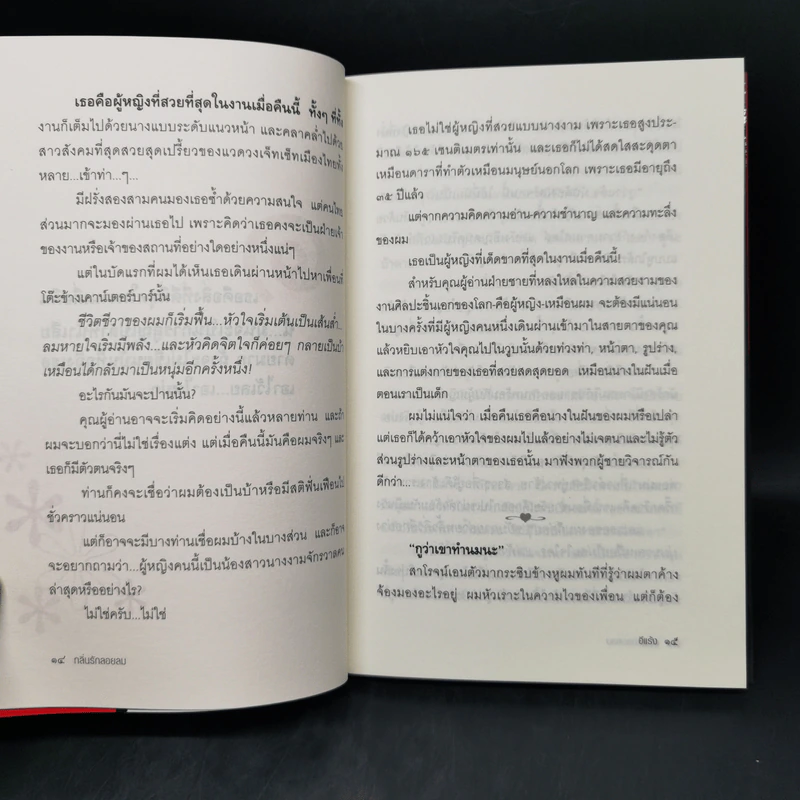 เธอคือผู้หญิงที่สวยที่สุดในงานเมื่อคืนนี้ ทั้งๆ ที่ทั้ง
งานก็เต็มไปด้วยนางแบบระดับแนวหน้า และคลาคล่ำไปด้วย
สาวสังคมที่สุดสวยสุดเปรี้ยวของแวดวงเจ็ทเซ็ทเมืองไทยทั้ง
หลาย...เข้าท่า...ๆ...
มีฝรั่งสองสามคนมองเธอซ้ำด้วยความสนใจ แต่คนไทย
ส่วนมากจะมองผ่านเธอไป เพราะคิดว่าเธอคงจะเป็นฝ่ายเจ้า
ของงานหรือเจ้าของสถานที่อย่างใดอย่างหนึ่งแน่ๆ
แต่ในบัดแรกที่ผมได้เห็นเธอเดินผ่านหน้าไปหาเพื่อนที่
โต๊ะข้างเคาน์เตอร์บาร์นั้น
ชีวิตชีวาของผมก็เริ่มฟื้น...หัวใจเริ่มเต้นเป็นเส้นส่ำ...
ลมหายใจเริ่มมีพลัง...และหัวคิดจิตใจก็ค่อยๆ กลายเป็นบ้า
เหมือนได้กลับมาเป็นหนุ่มอีกครั้งหนึ่ง!
อะไรกันมันจะปานนั้น?
คุณผู้อ่านอาจจะเริ่มคิดอย่างนี้แล้วหลายท่าน และถ้า
ผมจะบอกว่านี่ไม่ใช่เรื่องแต่ง แต่เมื่อคืนนี้มันคือผมจริงๆ และ
เธอก็มีตัวตนจริงๆ
ท่านก็คงจะเชื่อว่าผมต้องเป็นบ้าหรือมีสติฟั่นเฟือนไป
ชั่วคราวแน่นอน
แต่ก็อาจจะมีบางท่านเชื่อผมบ้างในบางส่วน และก็อาจ
จะอยากถามว่า...ผู้หญิงคนนี้เป็นน้องสาวนางงามจักรวาลคน
ล่าสุดหรืออย่างไร?
ไม่ใช่ครับ...ไม่ใช่
๑๔ กลิ่นรักลอยลม
เธอไม่ใช่ผู้หญิงที่สวยแบบนางงาม เพราะเธอสูงประ-
มาณ ๑๖๕ เซนติเมตรเท่านั้น และเธอก็ไม่ได้สดใสสะดุดตา
เหมือนดาราที่ทำตัวเหมือนมนุษย์นอกโลก เพราะเธอมีอายุถึง
๓๕ ปีแล้ว
แต่จากความคิดความอ่าน-ความชำนาญ และความทะลึ่ง
ของผม
เธอเป็นผู้หญิงที่เด็ดขาดที่สุดในงานเมื่อคืนนี้!
สำหรับคุณผู้อ่านฝ่ายชายที่หลงใหลในความสวยงามของ
งานศิลปะชิ้นเอกของโลก-คือผู้หญิง-เหมือนผม จะต้องมีแน่นอน
ในบางครั้งที่มีผู้หญิงคนหนึ่งเดินผ่านเข้ามาในสายตาของคุณ
แล้วหยิบเอาหัวใจคุณไปในวูบนั้นด้วยท่วงท่า, หน้าตา, รูปร่าง,
และการแต่งกายของเธอที่สวยสดสุดยอด เหมือนนางในฝันเมื่อ
ตอนเราเป็นเด็ก
ผมไม่แน่ใจว่า เมื่อคืนเธอคือนางในฝันของผมหรือเปล่า
แต่เธอก็ได้คว้าเอาหัวใจของผมไปแล้วอย่างไม่เจตนาและไม่รู้ตัว
ส่วนรูปร่างและหน้าตาของเธอนั้น มาฟังพวกผู้ชายวิจารณ์กัน
ดีกว่า...
"กูว่าเขาทำนมนะ"
สาโรจน์เอนตัวมากระซิบข้างหูผมทันทีที่รู้ว่าผมตาค้าง
จ้องมองอะไรอยู่ ผมหัวเราะในความไวของเพื่อน แต่ก็ต้อง
อีแร้ง ๑๕